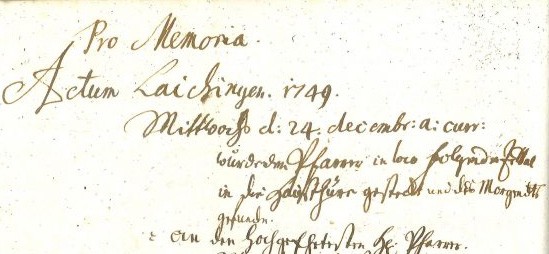 Pro Memoria.
Actum Laichingen. 1749.
Mittwochs d: 24. decembr: a: curr:
wurde dem Pfarrer in folgender Zettel
in die Hausthüre gesteckt und des Morgends
gefunden.
an den Hochgeehrtesten H: Pfarrer.